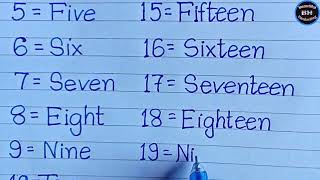 5 = Five 15 = Fifteen
6 = Six 16 = Sixteen
7 = Seven 17 = Seventeen
8 = Eight 18 = Eighteen
9 = Nine 19 = Ni
BH